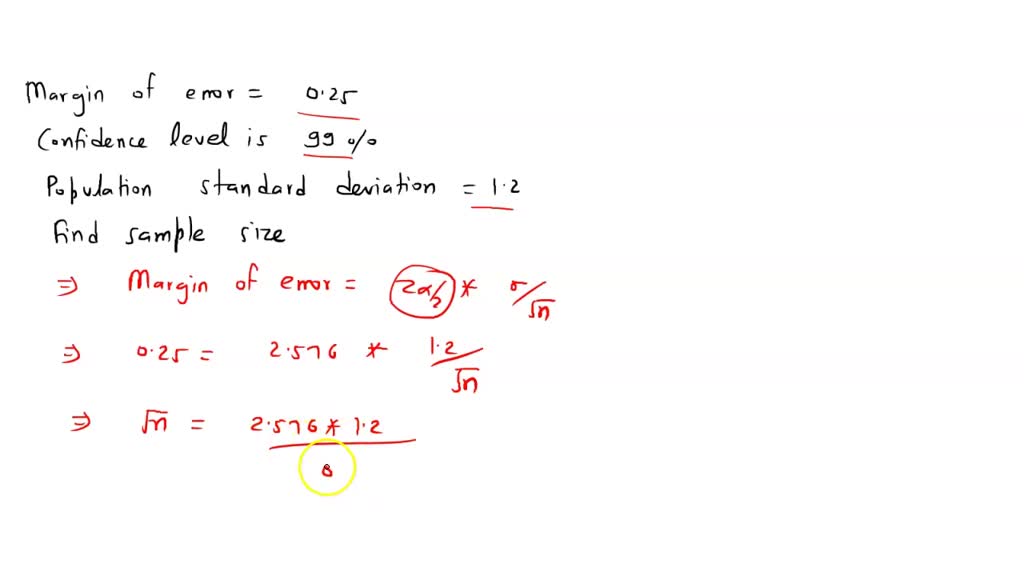 Margin of error = 0.25
Confidence level is 99 %
Population standard deviation = 1.2
find sample size
⇒ Margin of error = Zα/2 * σ/√n
⇒ 0.25 = 2.576 * 1.2/√n
⇒ √n = 2.576 * 1.2
0